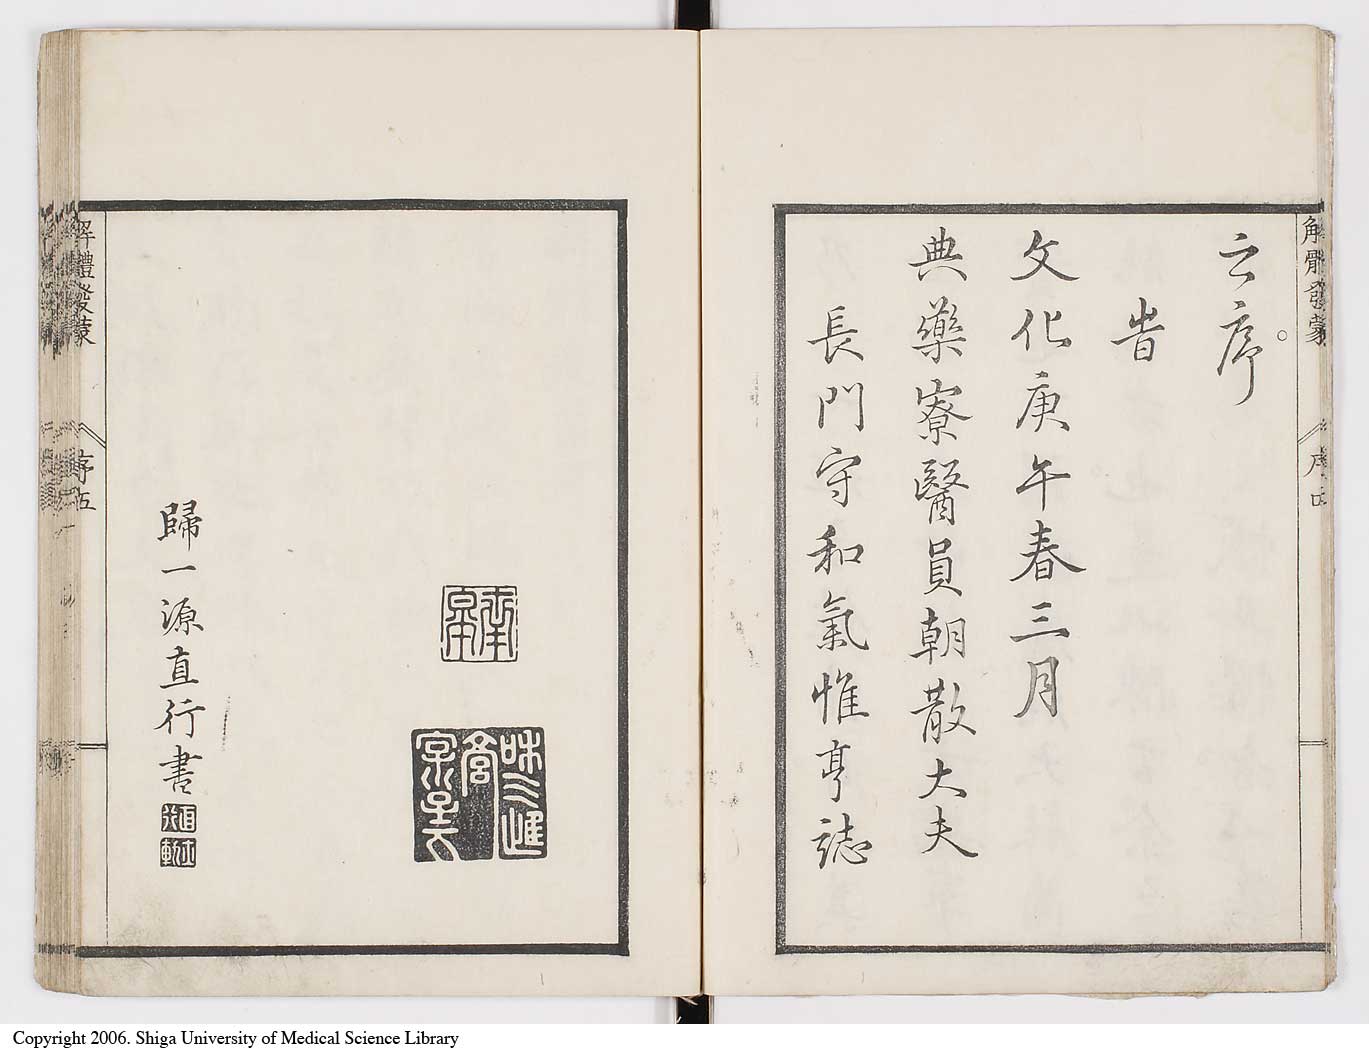 云序。
旹
文化庚午春三月
典藥寮醫員朝散大夫
長門守和氣惟亨誌
解體發蒙
序四
歸一源直行書
解體發蒙
序五
Copyright 2006. Shiga University of Medical Science Library